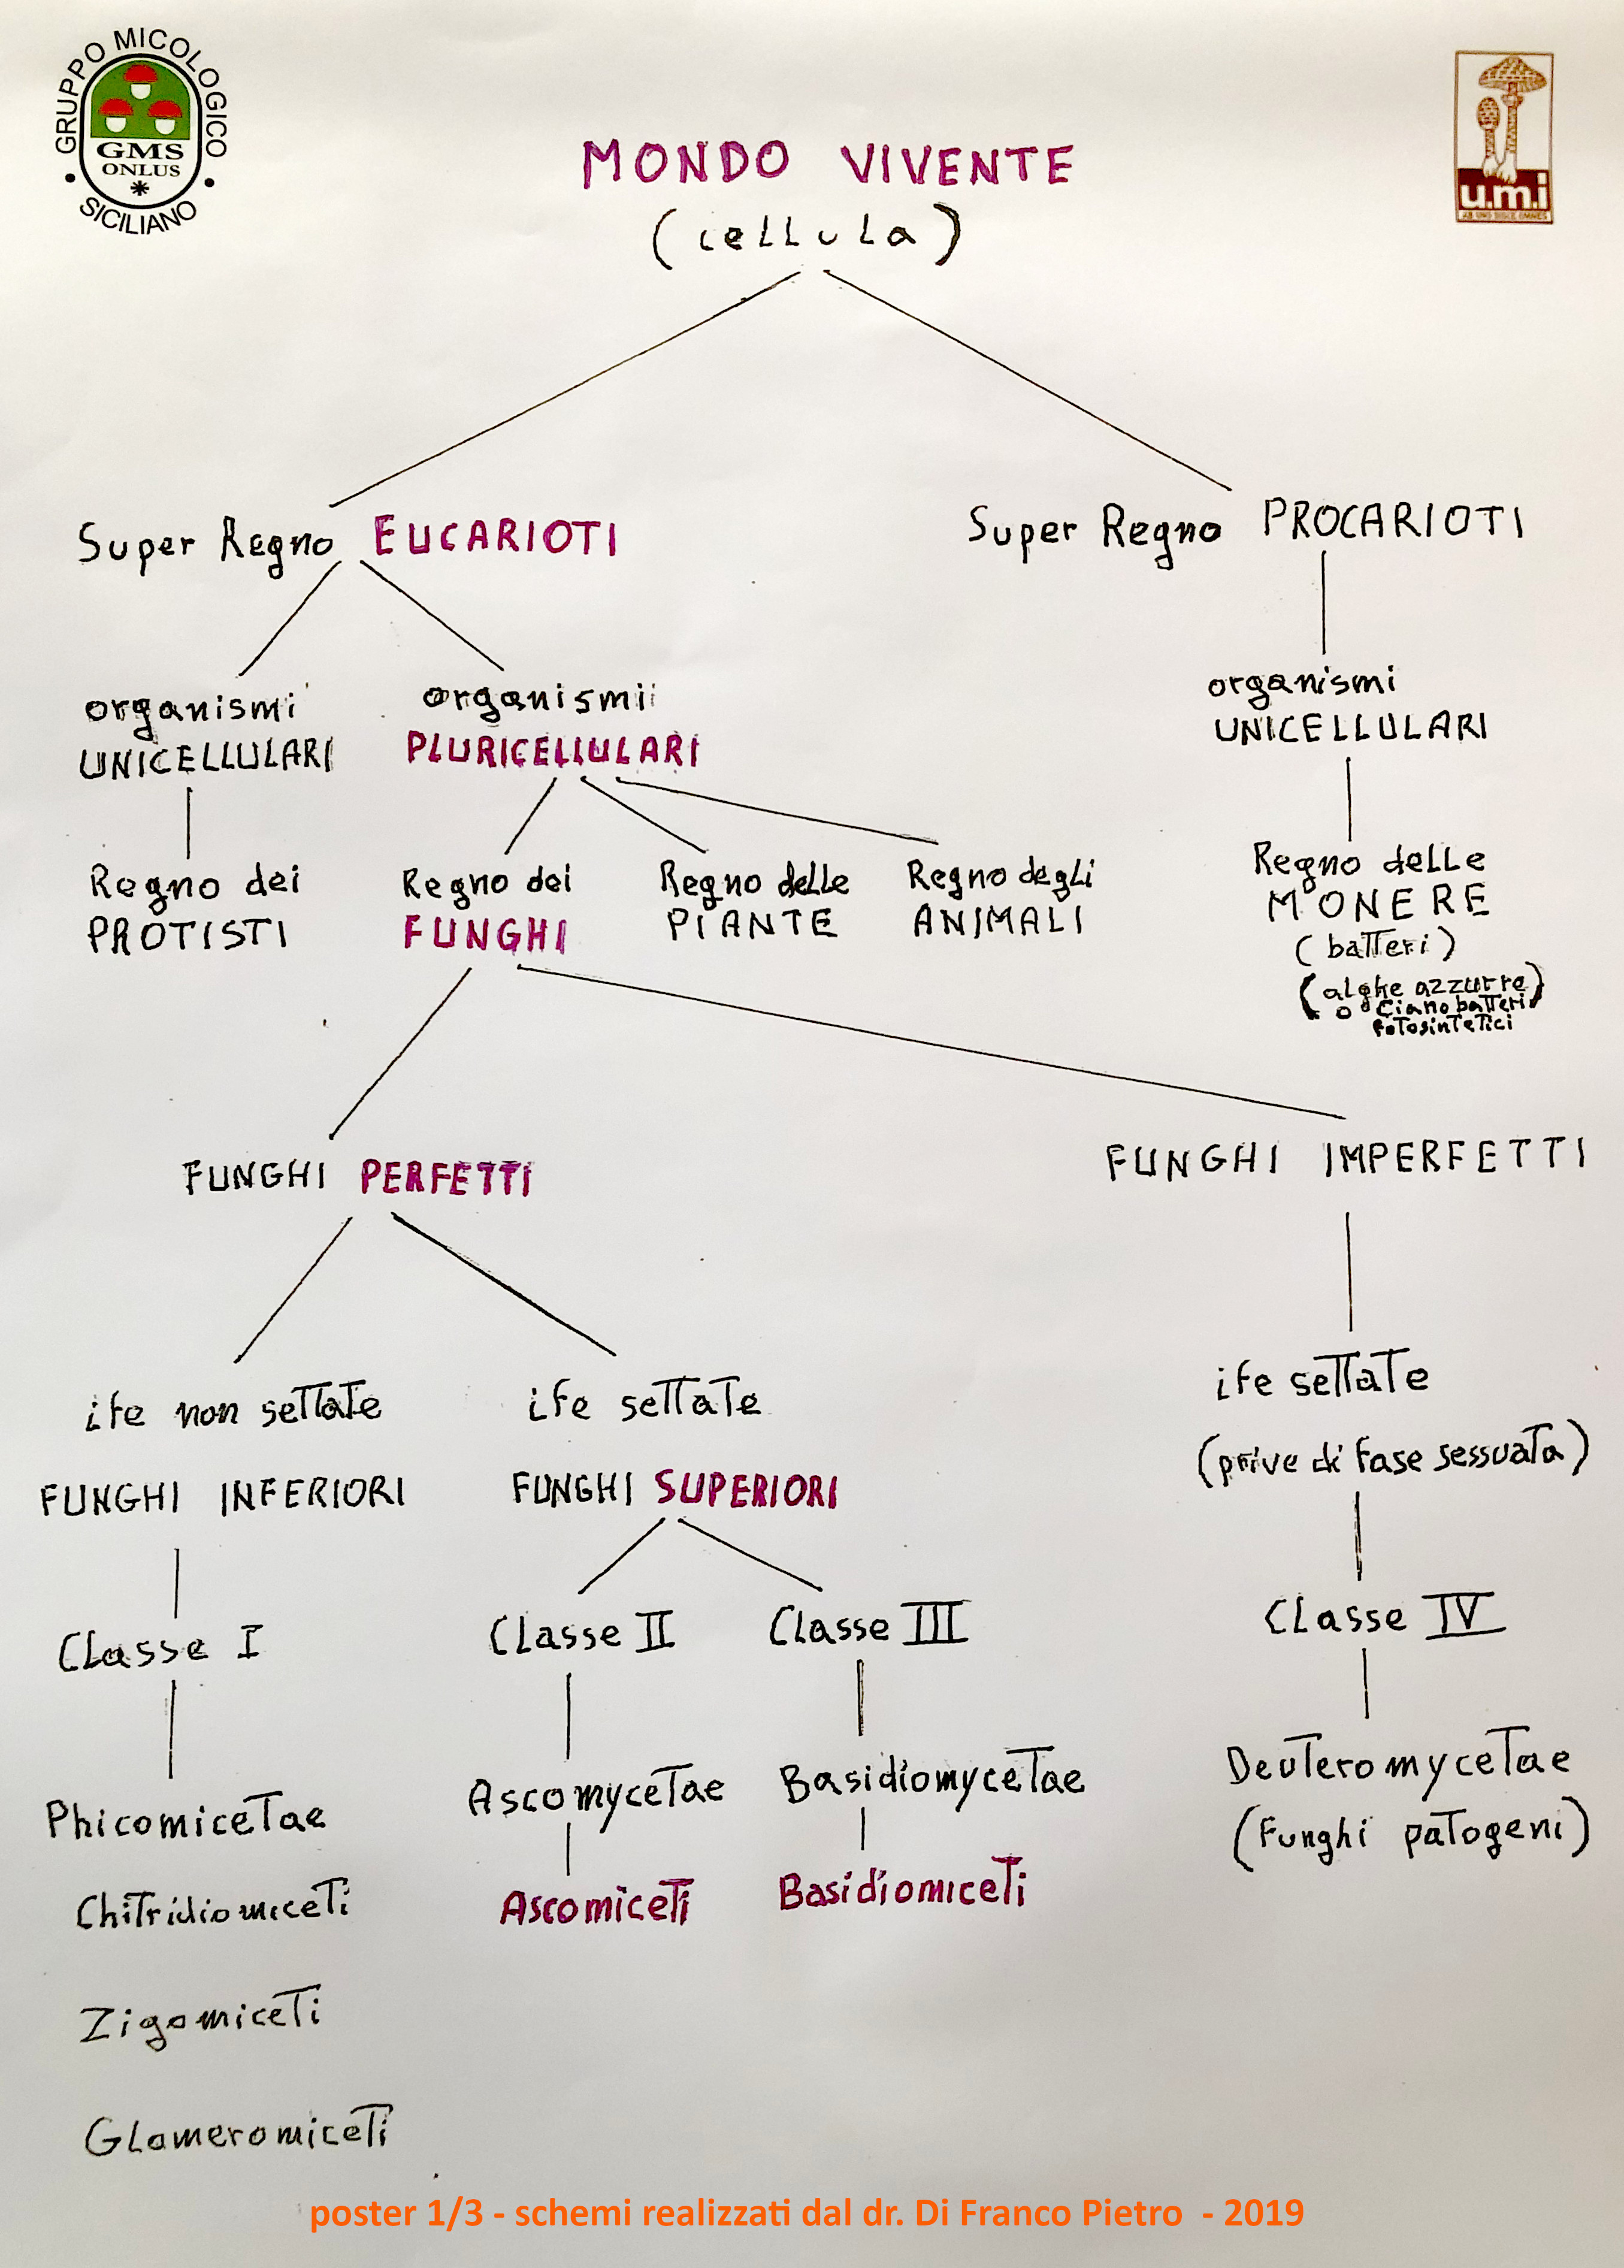 GRUPPO MICOLOGICO
GMS
ONLUS
SICILIANO
u.m.i
MONDO VIVENTE
(cellula)
Super Regno EUCARIOTI
Super Regno PROCARIOTI
organismi
UNICELLULARI
organismii
PLURICELLULARI
organismi
UNICELLULARI
Regno dei
PROTISTI
Regno dei
FUNGHI
Regno delle
PIANTE
Regno degli
ANIMALI
Regno delle
MONERE
(batteri)
(alghe azzurre)
o Cianobatteri
fotosintetici
FUNGHI PERFETTI
FUNGHI IMPERFETTI
ife non settate
FUNGHI INFERIORI
ife settate
FUNGHI SUPERIORI
ife settate
(prive di fase sessuata)
Classe I
Classe II
Classe III
Classe IV
Phicomicetae
Ascomycetae
Basidiomycetae
Deuteromycetae
(funghi patogeni)
Chitridiomiceti
Ascomiceti
Basidiomiceti
Zigomiceti
Glomeromiceti
poster 1/3 - schemi realizzati dal dr. Di Franco Pietro - 2019